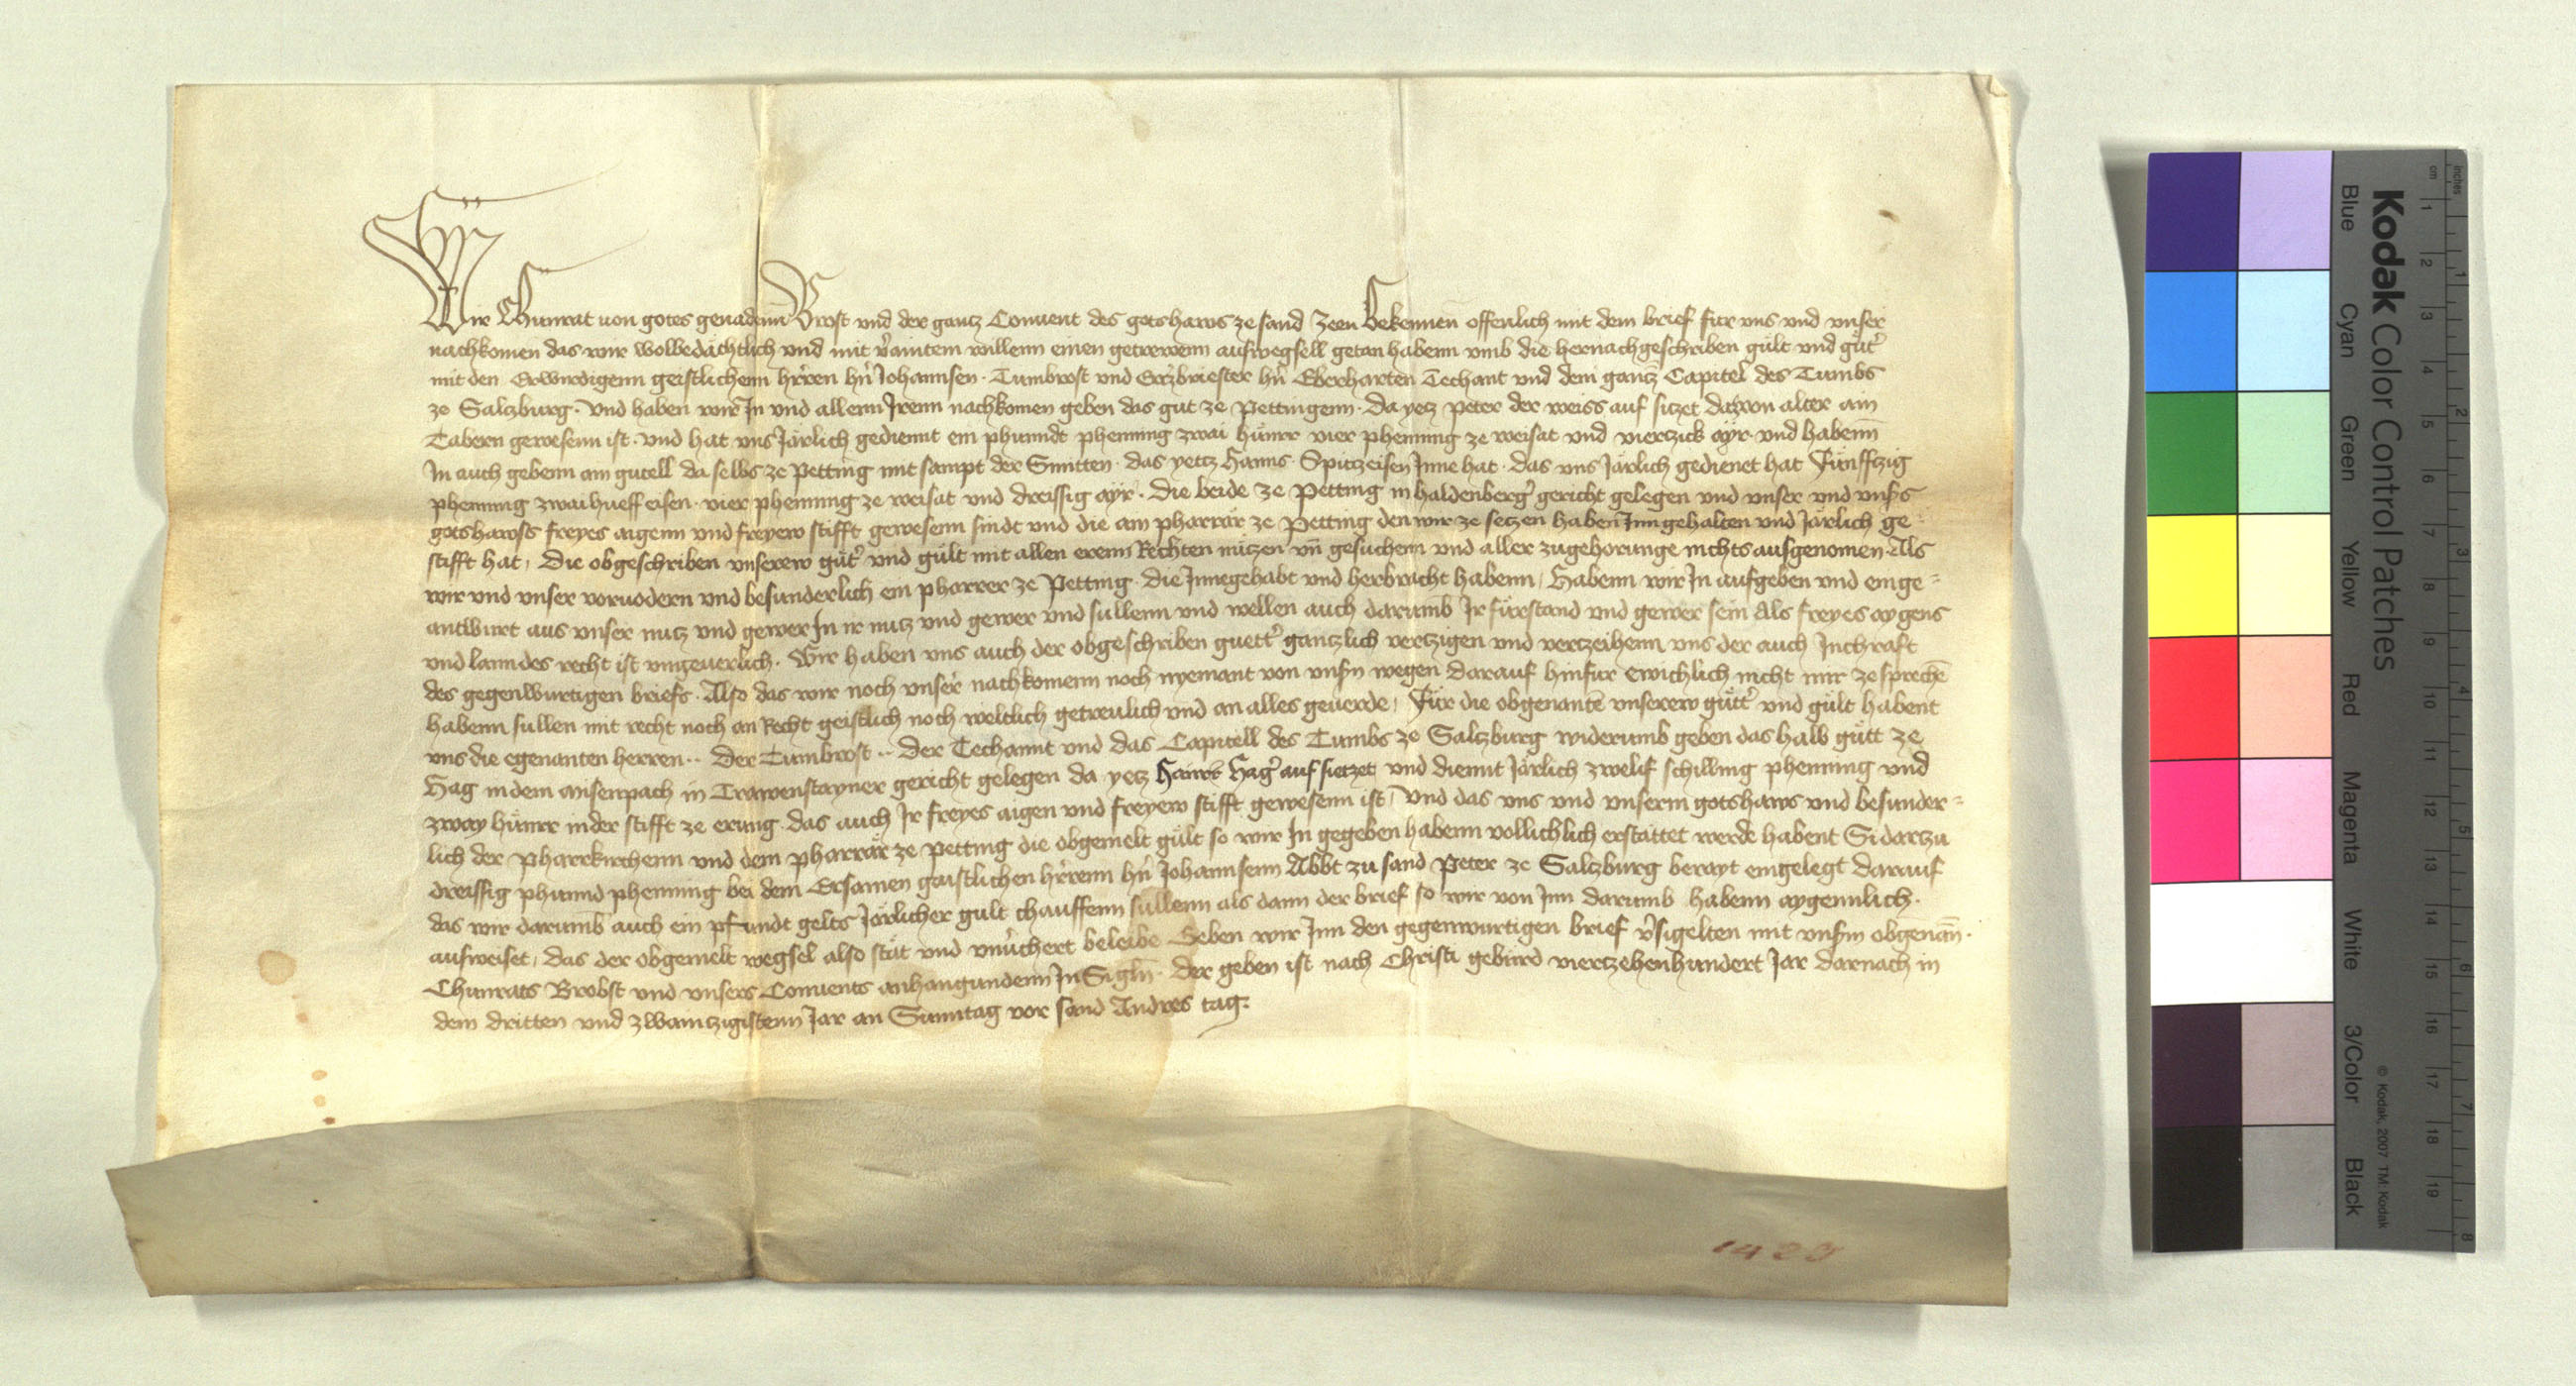 Wir Chunrat von gotes genadenn Brost und der gantz Convent des gotshaws ze sand Zeen bekennen offenlich mit dem brief fur uns und unser
nachkomen das wir wolbedächtlich und mit v̓aintem willenn einen getrewenn auswegsell getan habenn umb die hernachgeschriben gült und gut̓
mit den Erwirdigenn geistlichenn hr̓ren hn̓ Johannsen · Tumbrost und Ertzbriester hn̓ Eberharten Techant und dem gantz̄ Capitel des Tumbs
ze Salczburg · Und haben wir In und allenn Irenn nachkomen geben das gut ze Pettingenn · Da yetz peter der weiss auf sitzet davon alter am
Tabern gewesenn ist · und hat uns Järlich gediennt ein phunndt phenning zwai hünrr vier phenning ze weisat und viertzick ayr · und habenn̄
In auch gebenn am gutell da selbs ze Petting mit sampt der Smitten · das yettz Hanns · Spitzeisen Inne hat · das uns Järlich gedienet hat Fünfftzig
phenning zwai hueff eisen · vier phenning ze weisat und dreissig ayr · Die beide ze Petting in haldenberg̓ gericht gelegen und unser und unsers
gotshawss freyes aigenn und freyew stifft gewesenn sindt und die am pharrär ze Petting den wir ze setzen haben Inn gehalten und Järlich ge
stifft hat / Die obgeschriben unserew güt̓ und gült mit allen erenn Rechten nützen un̄ gesuchenn und aller zugehorunge nichts ausgenomen · Als
wir und unser vorvodern und besunderlich ein pharrer ze Petting · die Innegehabt und herbracht habenn / Habenn wir In aufgeben und einge=
antwurt aus unser nutz und gewer In ir nutz und gewer und sullenn und wellen auch darumb Ir fürstand und gewer sein Als freyes aygens
und lanndes recht ist ungeverlich · Wir haben uns auch der obgeschriben guett̓ gantzlich vertzigen und vertzeihenn uns der auch Inchraft
des gegenwurtigen briefs · Also das wir noch unser̓ nachkomenn noch nyemant von unsn̓ wegen darauf hinfur ewichlich nicht mir ze sprechē
habenn sullen mit recht noch an Recht geistlich noch weltlich getreulich und an alles geverde / Für die obgenantē unserew gütt̓ und gült habent
uns die egenanten herren ·· Der Tumbrost ·· Der Techannt und das Capitell des Tumbs ze Salczburg widerumb geben das halb gütt ze
Hag in dem misenpach in Trawenstayner gericht gelegen da yetz Hainr̓ Hag̓ auf sietzet und diennt Järlich zwelif schilling phenning und
zway hünrr in der stifft ze erung · das auch Ir freyes aigen und freyew stifft gewesenn ist / Und das uns und unserm gotshaws und besunder=
lich der pharrkirchenn und dem pharrär ze Petting die obgemelt gült so wir In gegeben habenn vollichlich erstattet werde habent Si dartzu
dreissig phunnd phenning bei dem Ersamen gaistlichen hr̓renn hn̓ Johannsenn Abbt zu sand Peter ze Salczburg berayt eingelegt darauf
das wir darumb auch ein pfundt gelts Järlicher gult chauffenn süllenn als dann der brief so wir von Inn darumb habenn aygennlich ·
ausweiset / das der obgemelt wegsel also stät und unv̓chert beleibe Geben wir Inn den gegenwurtigen brief v̓sigelten mit unsm̓ obgenān̄ ·
Chunrats Brobst und unsers Convents anhangundenn In Sigln̄ · Der geben ist nach Christi gebürd viertzehenhundert Jar darnach in
dem dritten und zwaintzigistenn Jar an Sunntag vor sand Andres tag ·
1423
Kodak Color Control Patches
Blue Cyan Green Yellow Red Magenta White 3/Color Black
© Kodak, 2007 TM: Kodak
inches 1 2 3 4 5 6 7 8
cm 1 2 3 4 5 6 7 8 9 10 11 12 13 14 15 16 17 18 19